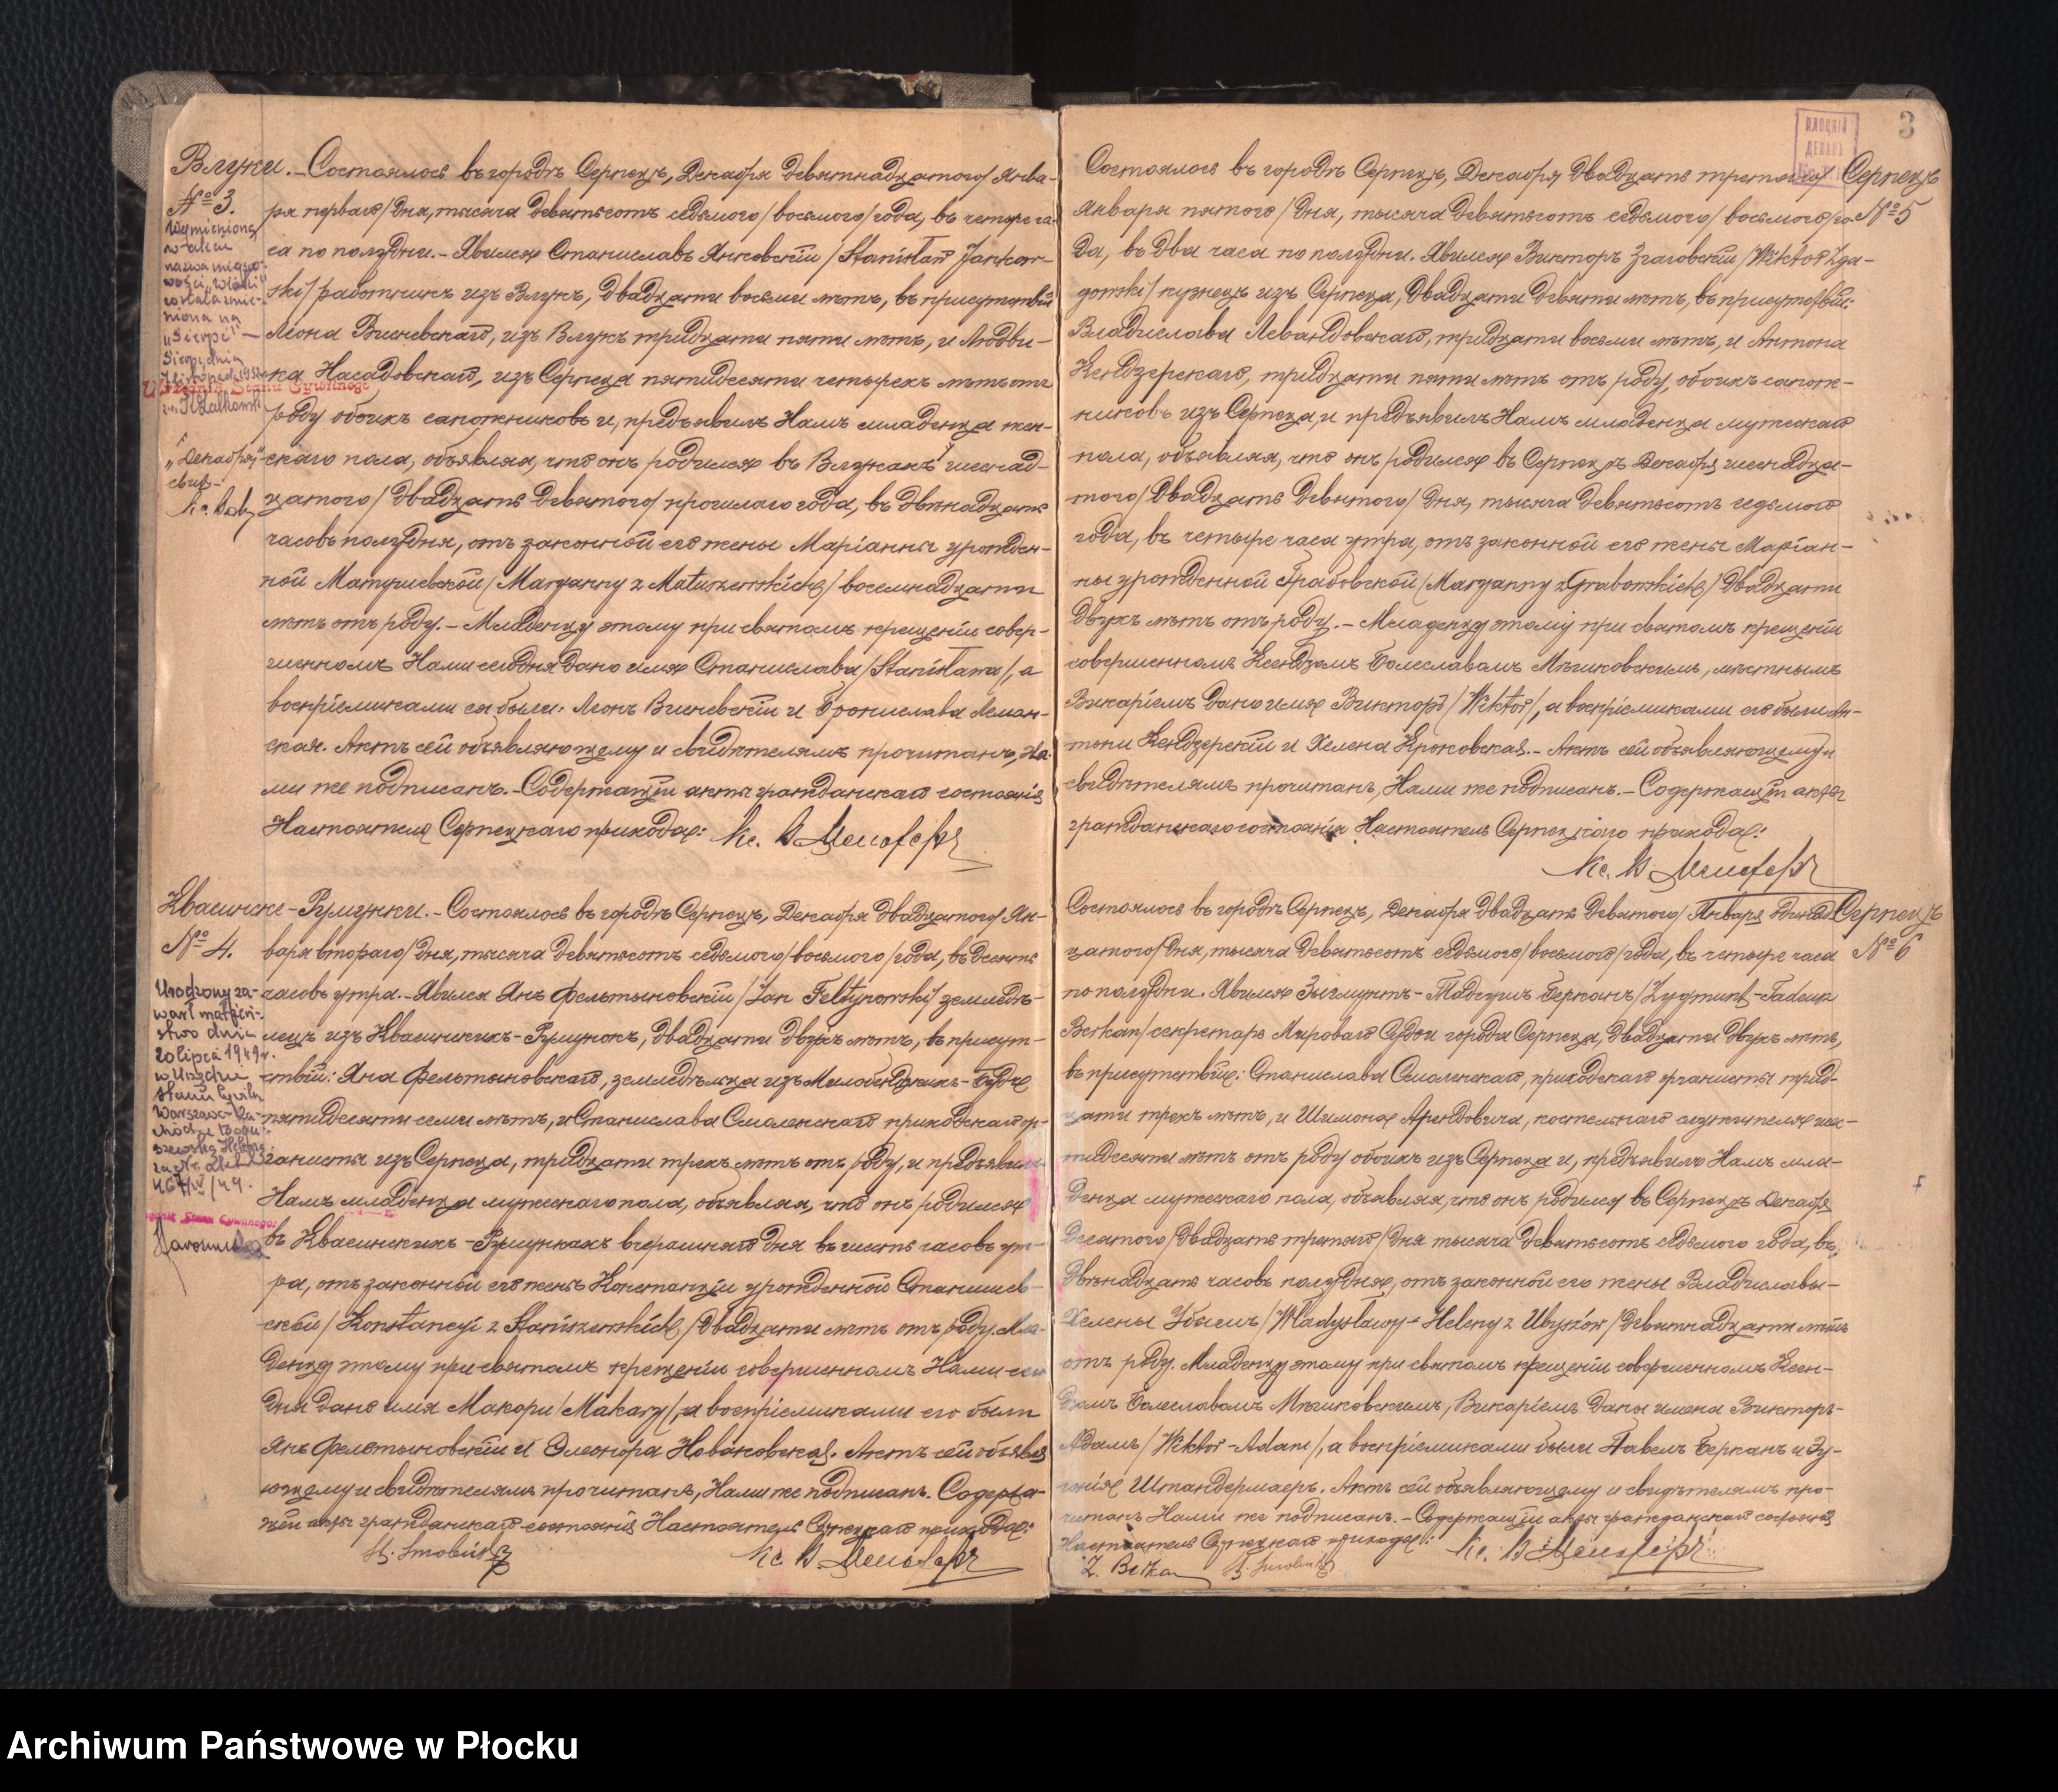 Влуки.
№ 3.
Состоялось въ городѣ Серпецъ, Декабря девятнадцатого/Янва-
ря перваго/дня, тысяча девятьсотъ седьмого/восьмого/года, въ четыре ча-
са по полудни. – Явился Станиславъ Янковскій /Stanisław Jankow-
ski/ работникъ изъ Влукъ, двадцати восьми лѣтъ, въ присутствіи
Леона Висневскаго, изъ Влукъ тридцати пяти лѣтъ, и Людви-
ка Насадовскаго, изъ Серпеца пятидесяти четырехъ лѣтъ отъ
роду обоихъ сапожниковъ и, предъявилъ Намъ младенца жен-
скаго пола, объявляя, что онъ родился въ Влукахъ шестнад-
цатого/двадцать девятого/прошлаго года, въ двѣнадцать
часовъ полудня, отъ законной его жены Маріанны урожден-
ной Матушевской /Maryanny z Matuszewskich/ восемнадцати
лѣтъ отъ роду. – Младенцу этому при святомъ крещеніи совер-
шенномъ Нами сегодня дано имя Станислава /Stanisława/, а
воспріемниками ея были: Леонъ Висневскій и Бронислава Леман-
ская. Актъ сей объявляющему и свидѣтелямъ прочитанъ, На-
ми же подписанъ. – Содержащій акты гражданскаго состоянія
Настоятель Серпецкаго прихода:
Wymieniona
w akcie
nazwa miejsco-
wości „Włuki”
została zmie-
niona na
„Sierpc” –
Urzędnik Stanu Cywilnego
„Декабря”
Квасинске-Румунки.
№ 4.
Состоялось въ городѣ Серпецъ, Декабря двадцатого/Ян-
варя второго/дня, тысяча девятьсотъ седьмого/восьмого/года, въ десять
часовъ утра. – Явился Янъ Фельтыновскій /Jan Feltynowski/ земледѣ-
лецъ изъ Квасинскихъ-Румунокъ, двадцати двухъ лѣтъ, въ присут-
ствіи: Яна Фельтыновскаго, земледѣльца изъ
пятидесяти семи лѣтъ, и Станислава Смоленскаго приходскаго ор-
ганисты изъ Серпеца, тридцати трехъ лѣтъ отъ роду, и предъявилъ
Намъ младенца мужескаго пола, объявляя, что онъ родился
въ Квасинскихъ-Румункахъ вчерашняго дня въ шесть часовъ ут-
ра, отъ законной его жены Констанціи урожденной Станишев-
ской /Konstancyi z Staniszewskich/ двадцати лѣтъ отъ роду. Мла-
денцу этому при святомъ крещеніи совершенномъ Нами сего
дня дано имя Макари /Makary/, а воспріемниками его были
Янъ Фельтыновскій и Элеонора Новаковская. Актъ сей объявля
ющему и свидѣтелямъ прочитанъ, Нами же подписанъ. Содержа-
щій акты гражданскаго состоянія Настоятель Серпецкаго прихода:
Urodzony za-
warł małżeń-
stwo dnia
20 lipca 1949 r.
w Urzędzie
Stanu Cywiln.
3
Серпецъ
№ 5
Состоялось въ городѣ Серпецъ, Декабря двадцать третьяго/
Января пятого/дня, тысяча девятьсотъ седьмого/восьмого/го-
да, въ два часа по полудни. Явился Викторъ Згаговскій /Wiktor Zga-
gowski/ кузнецъ изъ Серпеца, двадцати девяти лѣтъ, въ присутствіи:
Владислава Левандовскаго, тридцати восьми лѣтъ, и Антона
Кендзерскаго, тридцати пяти лѣтъ отъ роду, обоихъ сапож-
никовъ изъ Серпеца, и предъявилъ Намъ младенца мужескаго
пола, объявляя, что онъ родился въ Серпецѣ Декабря шестнадца-
того/двадцать девятого/дня, тысяча девятьсотъ седьмого
года, въ четыре часа утра, отъ законной его жены Маріан-
ны урожденной Грабовской /Maryanny z Grabowskich/ двадцати
двухъ лѣтъ отъ роду. – Младенцу этому при святомъ крещеніи
совершенномъ Ксендзомъ Болеславомъ Мѣшковскимъ, мѣстнымъ
Викаріемъ дано имя Викторъ /Wiktor/, а воспріемниками его были Ан-
тони Кендзерскій и Хелена Кроковская. – Актъ сей объявляющему и
свидѣтелямъ прочитанъ, Нами же подписанъ. – Содержащій акты
гражданскаго состоянія Настоятель Серпецкаго прихода:
Серпецъ
№ 6
Состоялось въ городѣ Серпецъ, Декабря двадцать девятого/Января одиннад
цатого/дня, тысяча девятьсотъ седьмого/восьмого/года, въ четыре часа
по полудни. Явился Зыгмунтъ-Тадеушъ Берканъ /Zygmunt-Tadeusz
Berkan/ секретарь Мирового Судьи города Серпеца, двадцати двухъ лѣтъ,
въ присутствіи: Станислава Смоленскаго, приходскаго органисты трид-
цати трехъ лѣтъ, и Шимона Арендовича, костельнаго служителя шес-
тидесяти лѣтъ отъ роду обоихъ изъ Серпеца и, предъявилъ Намъ мла-
денца мужескаго пола, объявляя, что онъ родился въ Серпецѣ Декабря
десятого/двадцать третьяго/дня тысяча девятьсотъ седьмого года, въ
двѣнадцать часовъ полудня, отъ законной его жены Владиславы-
Хелены Убышъ /Władysławy-Heleny z Ubyszów/ девятнадцати лѣтъ
отъ роду. Младенцу этому при святомъ крещеніи совершенномъ Ксен-
дзомъ Болеславомъ Мѣшковскимъ, Викаріемъ даны имена Викторъ-
Адамъ /Wiktor-Adam/, а воспріемниками были Павелъ Берканъ и Эу-
генія Штандермаеръ. Актъ сей объявляющему и свидѣтелямъ про-
читанъ Нами же подписанъ. – Содержащій акты гражданскаго состоянія
Настоятель Серпецкаго прихода:
Z. Berkan
Archiwum Państwowe w Płocku